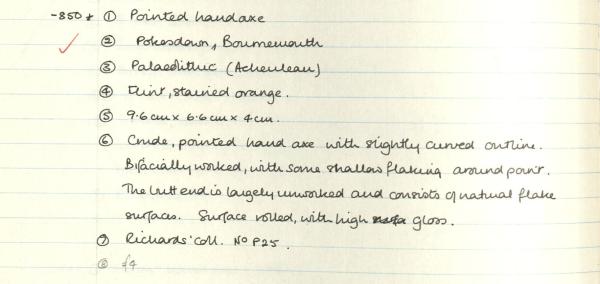 -850 * ① Pointed handaxe
② Pokesdown, Bournemouth
③ Palaeolithic (Acheulean)
④ Flint, stained orange.
⑤ 9.6cm x 6.6cm x 4cm.
⑥ Crude, pointed hand axe with slightly curved outline.
Bifacially worked, with some shallow flaking around point.
The butt end is largely unworked and consists of natural flake
surfaces. Surface rolled, with high gloss.
⑦ Richards' Coll. No P25.
⑧ f4